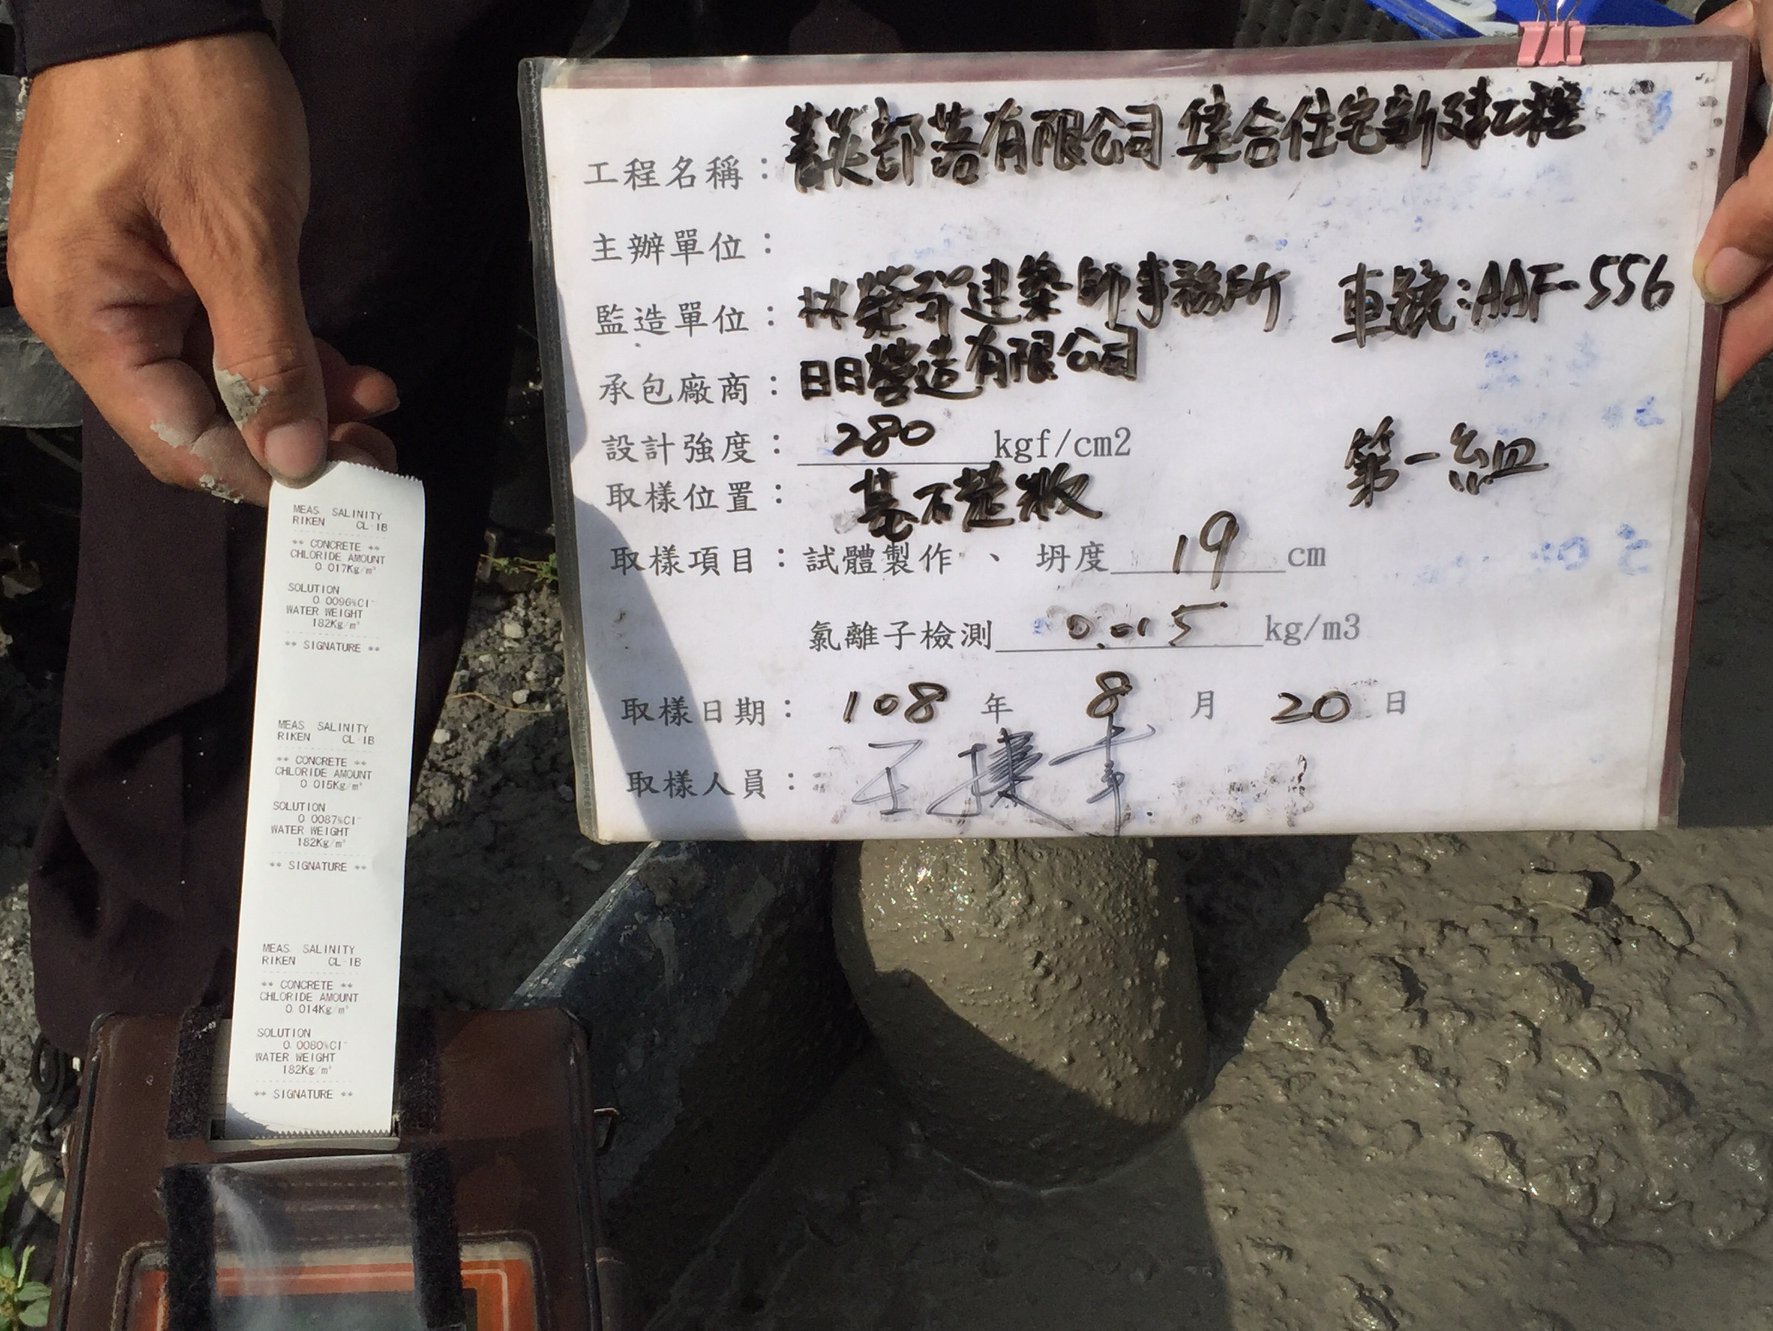 工程名稱：菁英部落有限公司 集合住宅新建工程
主辦單位：
監造單位：林榮 建築師事務所 車號：AAF-556
承包廠商：日日營造有限公司
設計強度：280 kgf/cm2
第一組
取樣位置：基礎版
取樣項目：試體製作、坍度 19 cm
氯離子檢測 0.015 kg/m3
取樣日期：108 年 8 月 20 日
取樣人員：王捷
MEAS SALINITY
RIKEN CL-1B
** CONCRETE **
CHLORIDE AMOUNT
0.017Kg/m³
SOLUTION
0.0096%Cl⁻
WATER WEIGHT
182Kg/m³
** SIGNATURE **
MEAS SALINITY
RIKEN CL-1B
** CONCRETE **
CHLORIDE AMOUNT
0.015Kg/m³
SOLUTION
0.0087%Cl⁻
WATER WEIGHT
182Kg/m³
** SIGNATURE **
MEAS SALINITY
RIKEN CL-1B
** CONCRETE **
CHLORIDE AMOUNT
0.014Kg/m³
SOLUTION
0.0080%Cl⁻
WATER WEIGHT
182Kg/m³
** SIGNATURE **